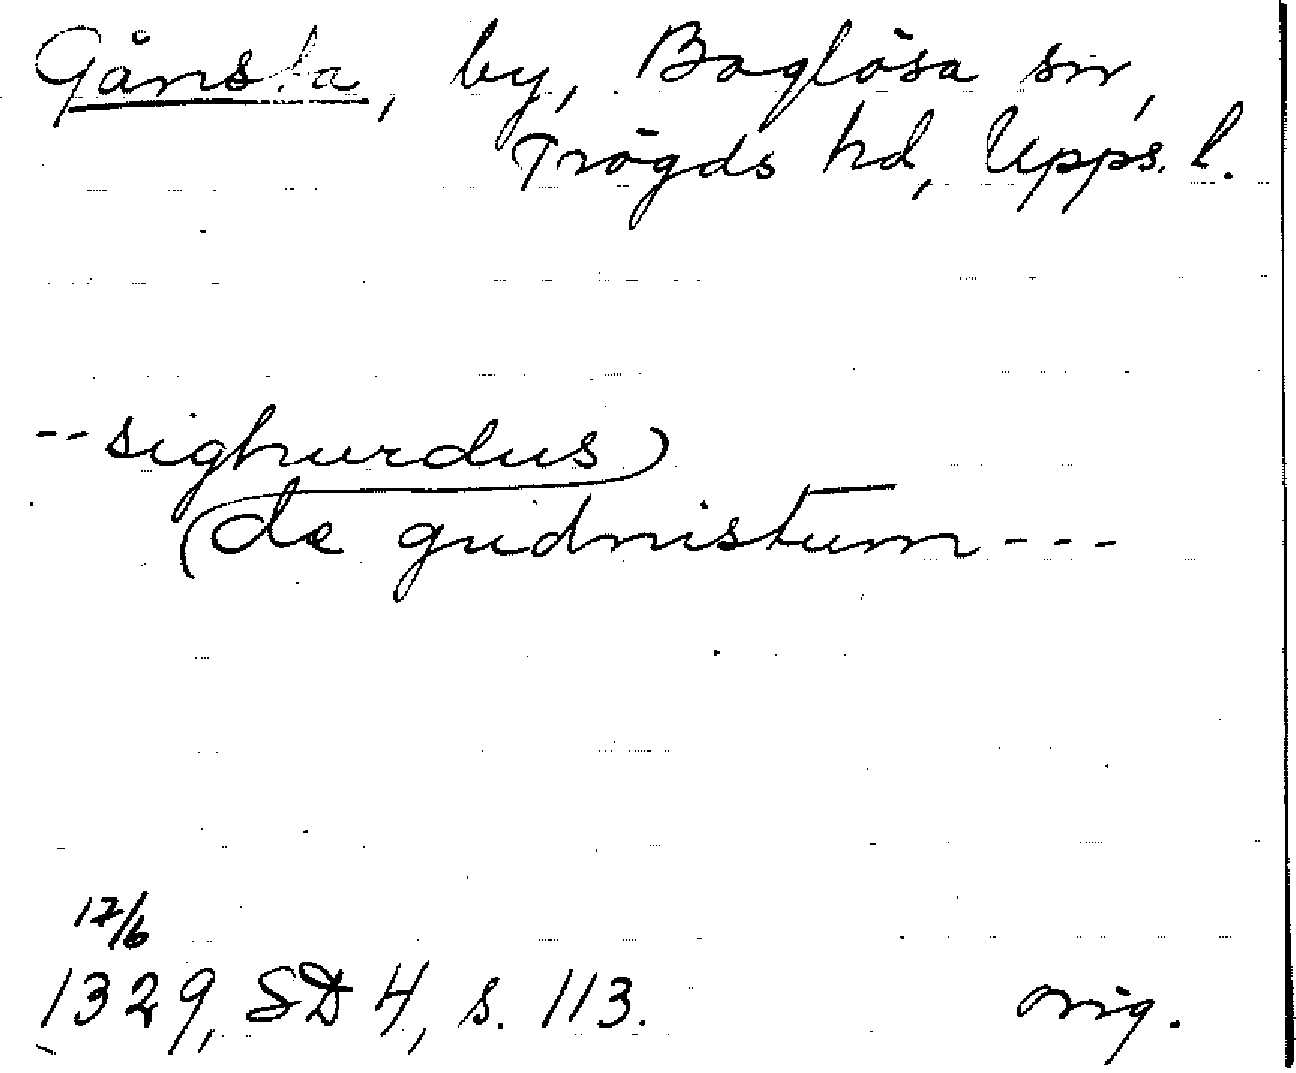 Gånsta, by, Boglösa sn,
Trögds hd, Upps. l.
-- sighurdus
de gudnistum ---
17/6
1329, SD 4, s. 113. orig.